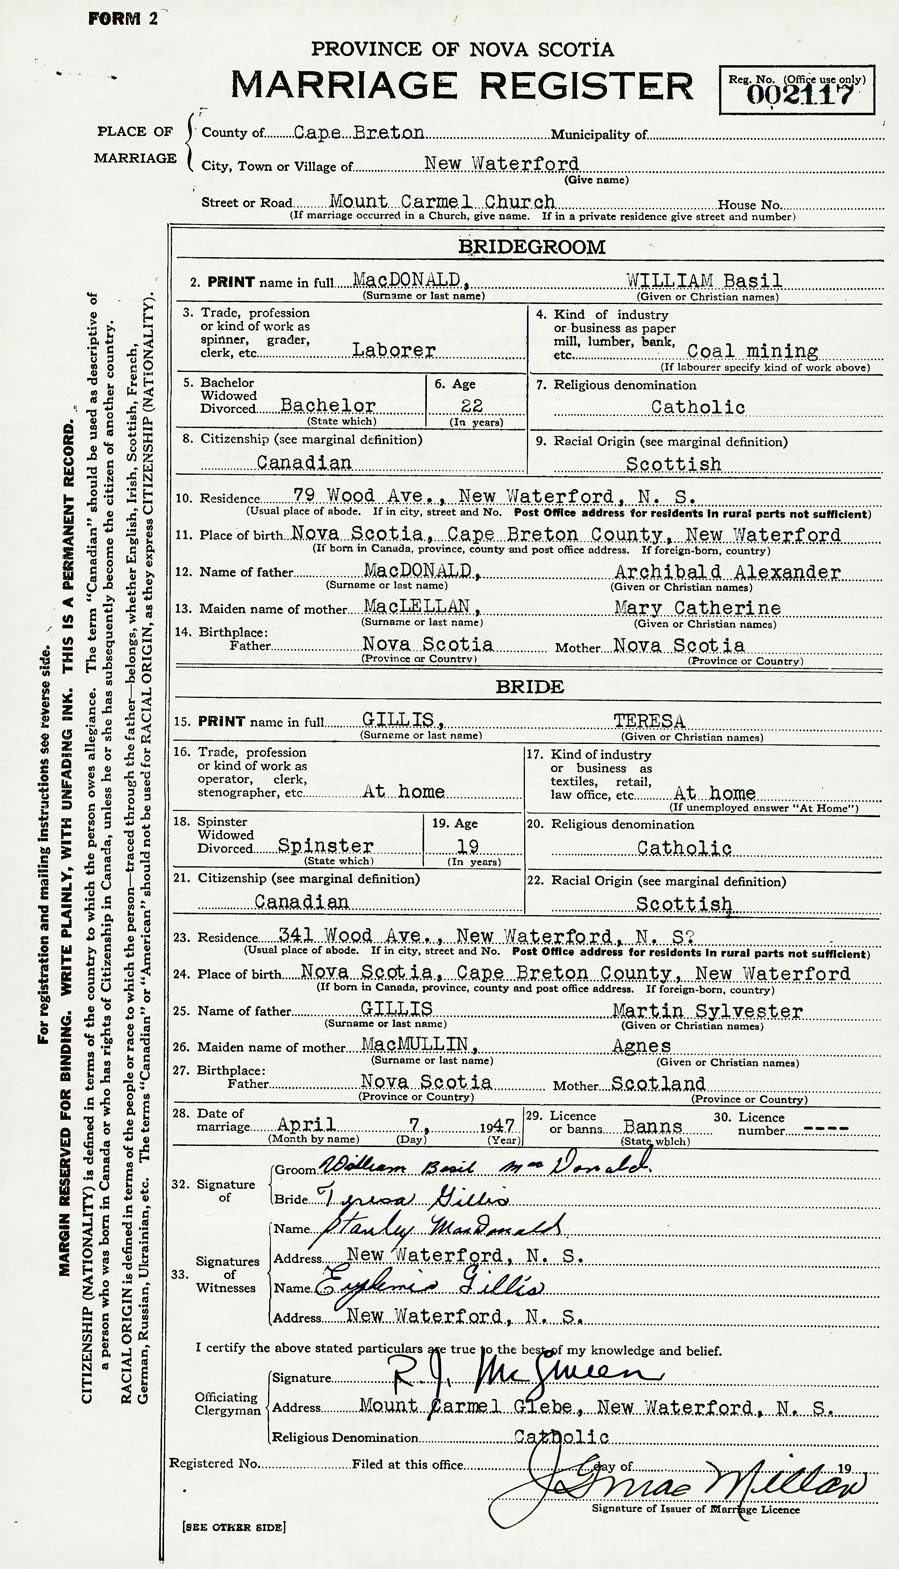 FORM 2
PROVINCE OF NOVA SCOTIA
MARRIAGE REGISTER
Reg. No. (Office use only)
002117
PLACE OF MARRIAGE
County of Cape Breton Municipality of
City, Town or Village of New Waterford
(Give name)
Street or Road Mount Carmel Church House No.
(If marriage occurred in a Church, give name. If in a private residence give street and number)
BRIDEGROOM
2. PRINT name in full MacDONALD, WILLIAM Basil
(Surname or last name) (Given or Christian names)
3. Trade, profession or kind of work as spinner, grader, clerk, etc. Laborer
4. Kind of industry or business as paper mill, lumber, bank, etc. Coal mining
(If labourer specify kind of work above)
5. Bachelor Widowed Divorced Bachelor
(State which)
6. Age 22
(In years)
7. Religious denomination
Catholic
8. Citizenship (see marginal definition)
Canadian
9. Racial Origin (see marginal definition)
Scottish
10. Residence 79 Wood Ave., New Waterford, N. S.
(Usual place of abode. If in city, street and No. Post Office address for residents in rural parts not sufficient)
11. Place of birth Nova Scotia, Cape Breton County, New Waterford
(If born in Canada, province, county and post office address. If foreign-born, country)
12. Name of father MacDONALD, Archibald Alexander
(Surname or last name) (Given or Christian names)
13. Maiden name of mother MacLELLAN, Mary Catherine
(Surname or last name) (Given or Christian names)
14. Birthplace:
Father Nova Scotia Mother Nova Scotia
(Province or Country) (Province or Country)
BRIDE
15. PRINT name in full GILLIS, TERESA
(Surname or last name) (Given or Christian names)
16. Trade, profession or kind of work as operator, clerk, stenographer, etc. At home
17. Kind of industry or business as textiles, retail, law office, etc. At home
(If unemployed answer "At Home")
18. Spinster Widowed Divorced Spinster
(State which)
19. Age 19
(In years)
20. Religious denomination
Catholic
21. Citizenship (see marginal definition)
Canadian
22. Racial Origin (see marginal definition)
Scottish
23. Residence 341 Wood Ave., New Waterford, N. S?
(Usual place of abode. If in city, street and No. Post Office address for residents in rural parts not sufficient)
24. Place of birth Nova Scotia, Cape Breton County, New Waterford
(If born in Canada, province, county and post office address. If foreign-born, country)
25. Name of father GILLIS Martin Sylvester
(Surname or last name) (Given or Christian names)
26. Maiden name of mother MacMULLIN, Agnes
(Surname or last name) (Given or Christian names)
27. Birthplace:
Father Nova Scotia Mother Scotland
(Province or Country) (Province or Country)
28. Date of marriage April 7, 1947
(Month by name) (Day) (Year)
29. Licence or banns Banns
(State which)
30. Licence number ----
32. Signature of
Groom William Basil MacDonald.
Bride Teresa Gillis
33. Signatures of Witnesses
Name Stanley MacDonald
Address New Waterford, N. S.
Name Euphemia Gillis
Address New Waterford, N. S.
I certify the above stated particulars are true to the best of my knowledge and belief.
Officiating Clergyman
Signature R. J. McSween
Address Mount Carmel Glebe, New Waterford, N. S.
Religious Denomination Catholic
Registered No. Filed at this office day of 19
J G MacMillan
Signature of Issuer of Marriage Licence
[SEE OTHER SIDE]
For registration and mailing instructions see reverse side.
MARGIN RESERVED FOR BINDING. WRITE PLAINLY, WITH UNFADING INK. THIS IS A PERMANENT RECORD.
CITIZENSHIP (NATIONALITY) is defined in terms of the country to which the person owes allegiance. The term "Canadian" should be used as descriptive of
a person who was born in Canada or who has rights of Citizenship in Canada, unless he or she has subsequently become the citizen of another country.
RACIAL ORIGIN is defined in terms of the people or race to which the person—traced through the father—belongs, whether English, Irish, Scottish, French,
German, Russian, Ukrainian, etc. The terms "Canadian" or "American" should not be used for RACIAL ORIGIN, as they express CITIZENSHIP (NATIONALITY).